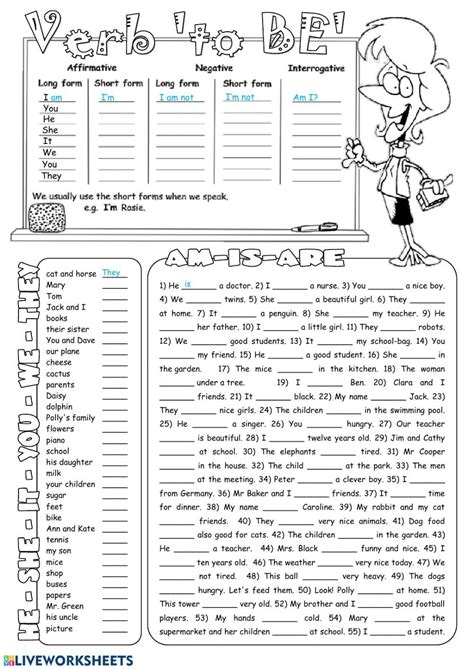 Verb 'to BE'
Affirmative Negative Interrogative
Long form Short form Long form Short form
I am I'm I am not I'm not Am I?
You
He
She
It
We
You
They
We usually use the short forms when we speak,
e.g. I'm Rosie.
HE - SHE - IT - YOU - WE - THEY
cat and horse They
Mary
Tom
Jack and I
books
their sister
You and Dave
our plane
cheese
cactus
parents
Daisy
dolphin
Polly's family
flowers
piano
school
his daughter
milk
your children
sugar
feet
bike
Ann and Kate
tennis
my son
mice
shop
buses
papers
Mr. Green
his uncle
picture
AM-IS-ARE
1) He is a doctor. 2) I ______ a nurse. 3) You ______ a nice boy.
4) We ______ twins. 5) She ______ a beautiful girl. 6) They ______
at home. 7) It ______ a penguin. 8) She ______ my teacher. 9) He
______ her father. 10) I ______ a little girl. 11) They ______ robots.
12) We ______ good students. 13) It ______ my school-bag. 14) You
______ my friend. 15) He ______ a good student. 16) She ______ in
the garden. 17) The mice ______ in the kitchen. 18) The woman
______ under a tree. 19) I ______ Ben. 20) Clara and I
______ friends. 21) It ______ black. 22) My name ______ Jack. 23)
They ______ nice girls. 24) The children ______ in the swimming pool.
25) He ______ a singer. 26) You ______ hungry. 27) Our teacher
______ is beautiful. 28) I ______ twelve years old. 29) Jim and Cathy
______ at school. 30) The elephants ______ tired. 31) Mr Cooper
______ in the house. 32) The child ______ at the park. 33) The men
______ at the meeting. 34) Peter ______ a clever boy. 35) I ______
from Germany. 36) Mr Baker and I ______ friends. 37) It ______ time
for dinner. 38) My name ______ Caroline. 39) My rabbit and my cat
______ friends. 40) They ______ very nice animals. 41) Dog food
______ also good for cats. 42) The children ______ in the garden. 43)
He ______ a teacher. 44) Mrs. Black ______ funny and nice. 45) I
______ ten years old. 46) The weather ______ very nice today. 47) We
______ not twins. 48) This ball ______ very heavy. 49) The dogs
______ hungry. Let's feed them. 50) Look! Polly ______ at home. 51)
This tower ______ very old. 52) My brother and I ______ good football
players. 53) My hands ______ cold. 54) Mary ______ at the
supermarket and her children ______ at school. 55) I ______ a student.
LIVEWORKSHEETS